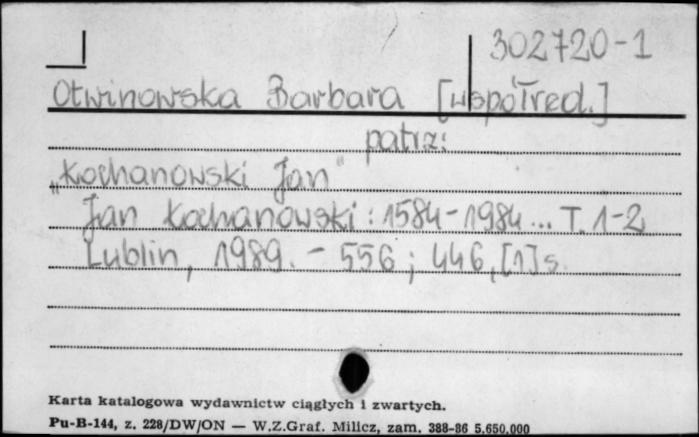 302720-1
Otwinowska Barbara [współred.]
patrz:
„Kochanowski Jan"
Jan Kochanowski: 1584-1984... T. 1-2
Lublin, 1989. - 556; 446, [1] s.
Karta katalogowa wydawnictw ciągłych i zwartych.
Pu-B-144, z. 228/DW/ON — W.Z.Graf. Milicz, zam. 388-86 5.650.000